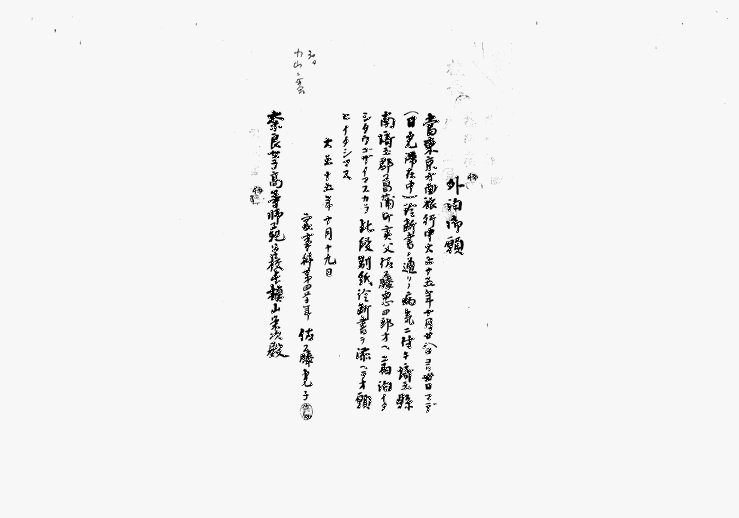 外泊御願
當東京方面旅行中大正十五年十月廿八日ヨリ卅日マデ
(日光滞在中)診断書ノ通リ病気ニ陸キ埼玉縣
南埼玉郡菖蒲町実父佐藤忠四郎方ヘ二泊イタ
シタウゴザイマスカラ此段別紙診断書ヲ添ヘテオ願
ヒイタシマス
大正十五年十月十九日
家事科第四学年 佐藤光子
奈良女子高等師範学校長槇山栄次殿